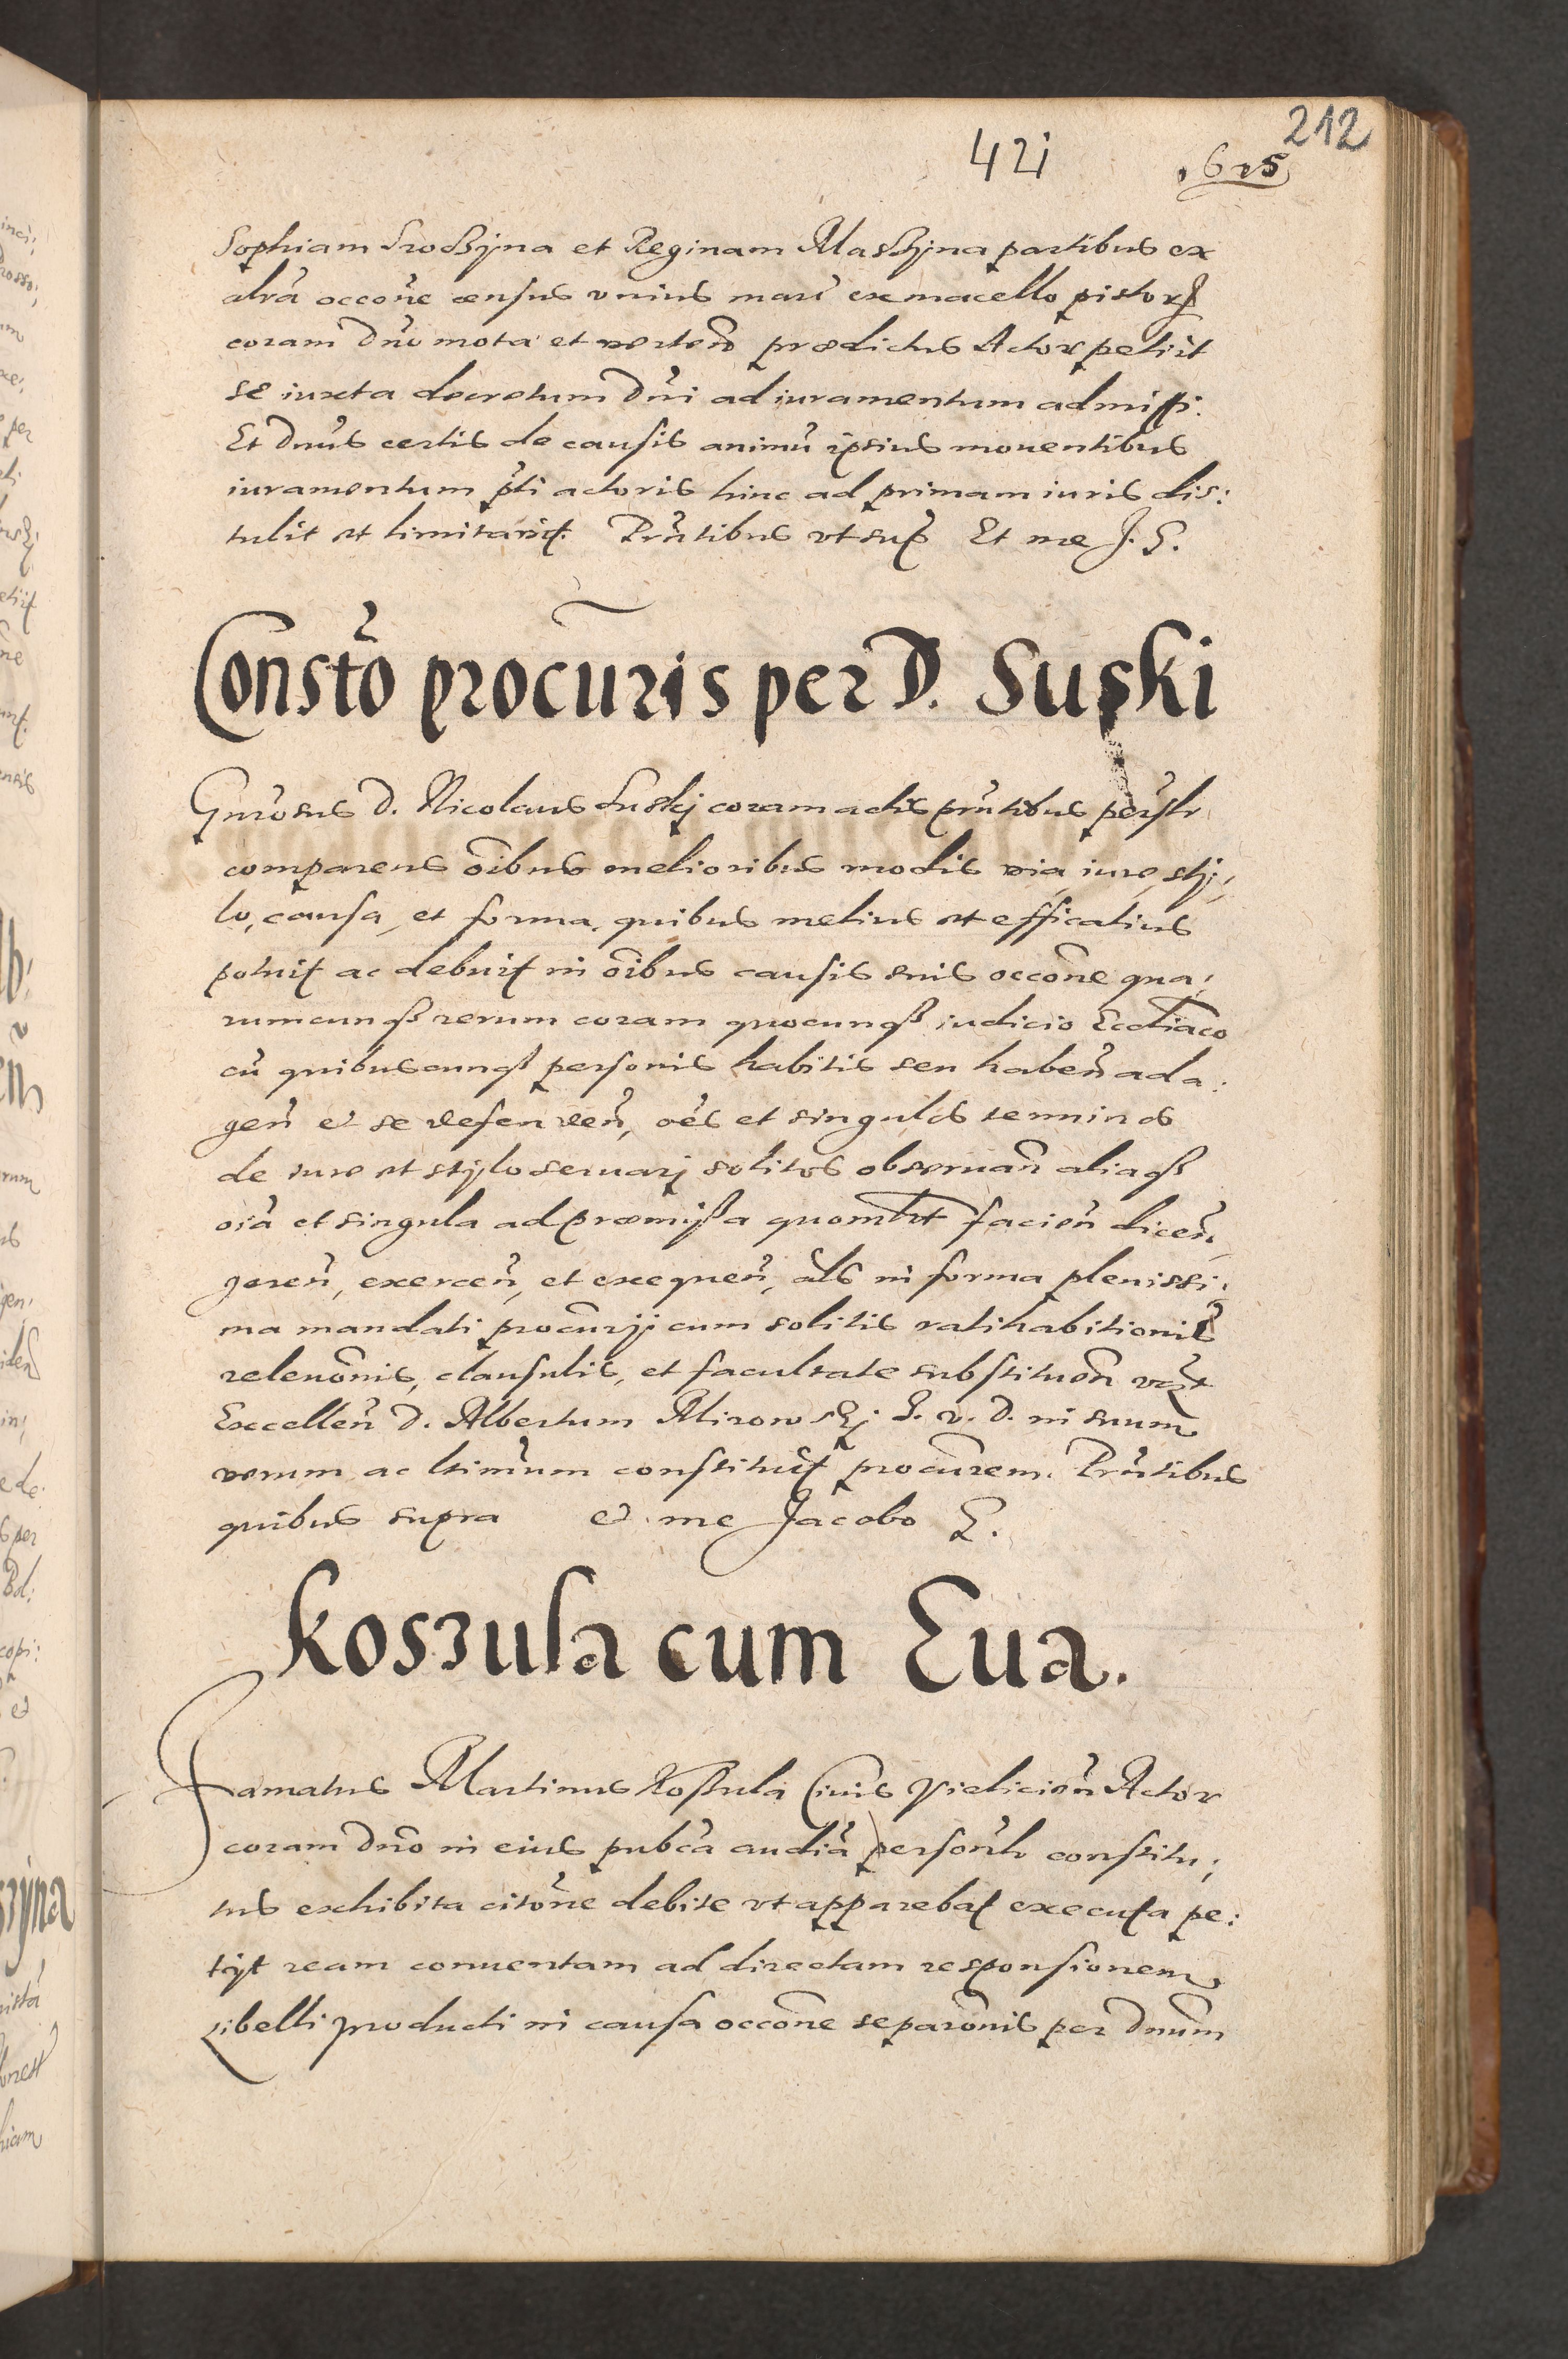 212
421
1625
Sophiam Srodzyna et Reginam Maskyna partibus ex
altrã occone census vnius marc̃ ex macello pistorz
coram Dno mota et verten̄ prædictus Actor petiit
se iuxta decretum Dni ad iuramentum admitti.
Et Dnus certis de causis animũ ipsius mouentibus
iuramentum pti actoris hinc ad primam iuris dis:
tulit et limitauit. Prñtibus vt sup̃ Et me J. G.
Constõ procuris per D. Suski
Gnrosus D. Nicolaus Suskj coram actis prñtibus persñlr
comparens oĩbus melioribus modis via iure sty;
lo, causa, et forma, quibus melius et efficatius
potuit ac debuit in oĩbus causis suis occone qua;
rumcunqz rerum coram quocunqz iudicio Ecclĩaco
cũ quibuscunqz personis habitis seu habeñ ad a:
geñ et se defendeñ, oẽs et singulos terminos
de iure et stylo seruarj solitos obseruañ aliaqz
oĩa et singula ad præmissa quomlbt facieñ diceñ,
gereñ, exerceñ, et exequeñ, als in forma plenissi:
ma mandati procurij cum solitis ratihabitionis
releuonis, clausulis, et facultate substituen̄
Excellen̄ D. Albertum Mirowskj I. v. D. in suum
verum ac ltimum constituit procurem. Prñtibus
quibus supra et me Jacobo G.
Koszula cum Eua.
Famatus Martinus Koszula Ciuis Vielicieñ Actor
coram dno in eius pubca audiã personlr constitu;
tus exhibita citone debite vt apparebat executa pe:
tyt ream conuentam ad directam responsionem
Libelli producti in causa occone separonis per Dnum